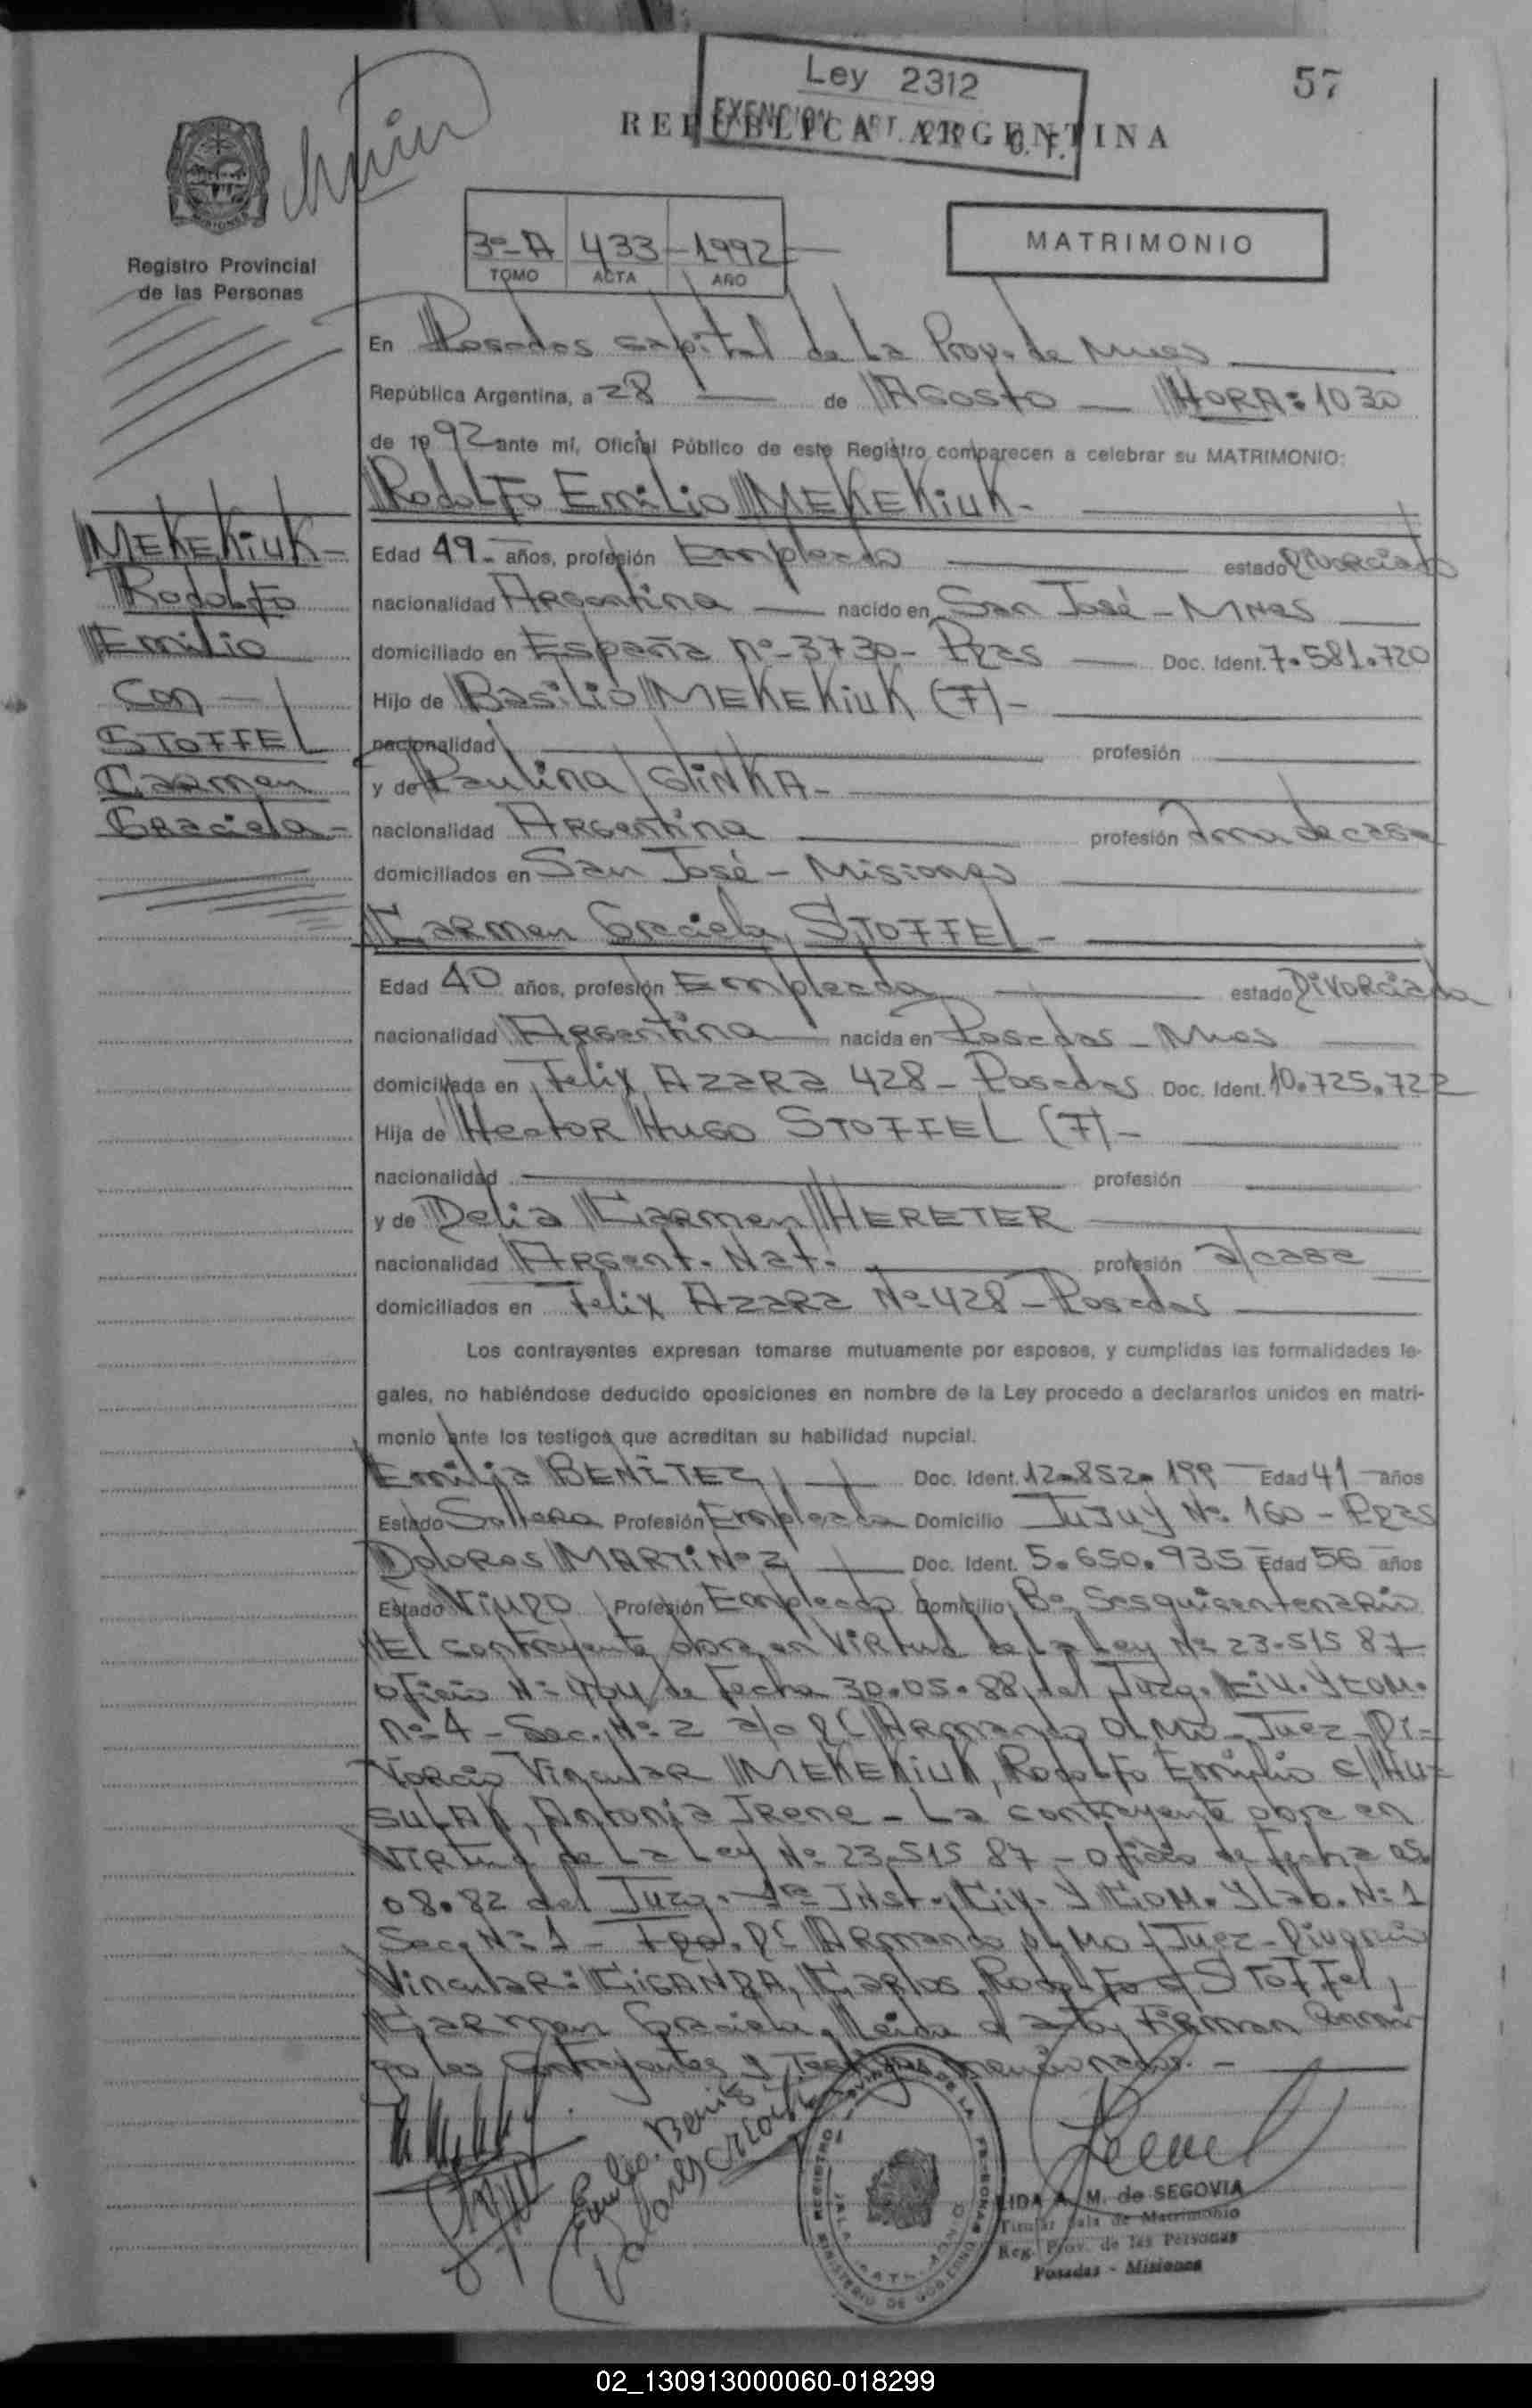 57
Ley 2312
EXENCION ART.
REPUBLICA ARGENTINA
MISIONES
Registro Provincial
de las Personas
3º-A 433-1992
TOMO ACTA AÑO
MATRIMONIO
En Posadas capital de La Prov. de Mnes
República Argentina, a 28 de Agosto HORA: 10 30
de 1992 ante mí, Oficial Público de este Registro comparecen a celebrar su MATRIMONIO:
Rodolfo Emilio MEKEKiuK-
MEKEKiuK-
Rodolfo
Emilio
Con
STOFFEL
Carmen
Graciela-
Edad 49- años, profesión Empleado estado Divorciado
nacionalidad Argentina nacido en San José - Mnes
domiciliado en España nº-3730- Pdas Doc. Ident. 7.581.720
Hijo de Basilio MEKEKiuK (F)-
nacionalidad profesión
y de Paulina GLiNKA-
nacionalidad Argentina profesión Ama de casa
domiciliados en San José - Misiones
Carmen Graciela STOFFEL-
Edad 40 años, profesión Empleada estado Divorciada
nacionalidad Argentina nacida en Posadas - Mnes
domiciliada en Felix Azara 428 - Posadas Doc. Ident. 10.725.722
Hija de Hector Hugo STOFFEL (F)-
nacionalidad profesión
y de Delia Carmen HERETER
nacionalidad Argent. Nat. profesión a/casa
domiciliados en Felix Azara Nº 428 - Posadas
Los contrayentes expresan tomarse mutuamente por esposos, y cumplidas las formalidades le-
gales, no habiéndose deducido oposiciones en nombre de la Ley procedo a declararlos unidos en matri-
monio ante los testigos que acreditan su habilidad nupcial.
Emilia BENÍTEZ Doc. Ident. 12.852.199 Edad 41 años
Estado Soltera Profesión Empleada Domicilio Jujuy Nº 160 - Pdas
Dolores MARTiNez Doc. Ident. 5.650.935 Edad 56 años
Estado Viudo Profesión Empleado Domicilio Bº Sesquicentenario
El contrayente obra en Virtud de La Ley Nº 23.515 87
oficio Nº 404 de Fecha 30.05.88, del Juzg. Civ. Y Com.
nº 4 - Sec. Nº 2 a/c Dr Armando OLMO - Juez - Di-
vorcio Vincular MEKEKiuK, Rodolfo Emilio c/ Hu-
SULAK, Antonia Irene - La contrayente obra en
Virtud de La Ley Nº 23.515 87 - oficio de fecha 05.
08.82 del Juzg. 1ª Inst. Civ. Y Com. Y Lab. Nº 1
Sec. Nº 1 - Fdo. Dr Armando OLMO - Juez - Divorcio
Vincular: CIGANDA, Carlos Rodolfo c/ STOFFEL,
Carmen Graciela. Leida el acta, Firman Conmi-
go los contrayentes y Testigos mencionados. -
Emilia Benitez
REGISTRO PROVINCIAL DE LAS PERSONAS
MINISTERIO DE GOBIERNO
LIDA A. M. de SEGOVIA
Titular Sala de Matrimonio
Reg. Prov. de las Personas
Posadas - Misiones
02_130913000060-018299